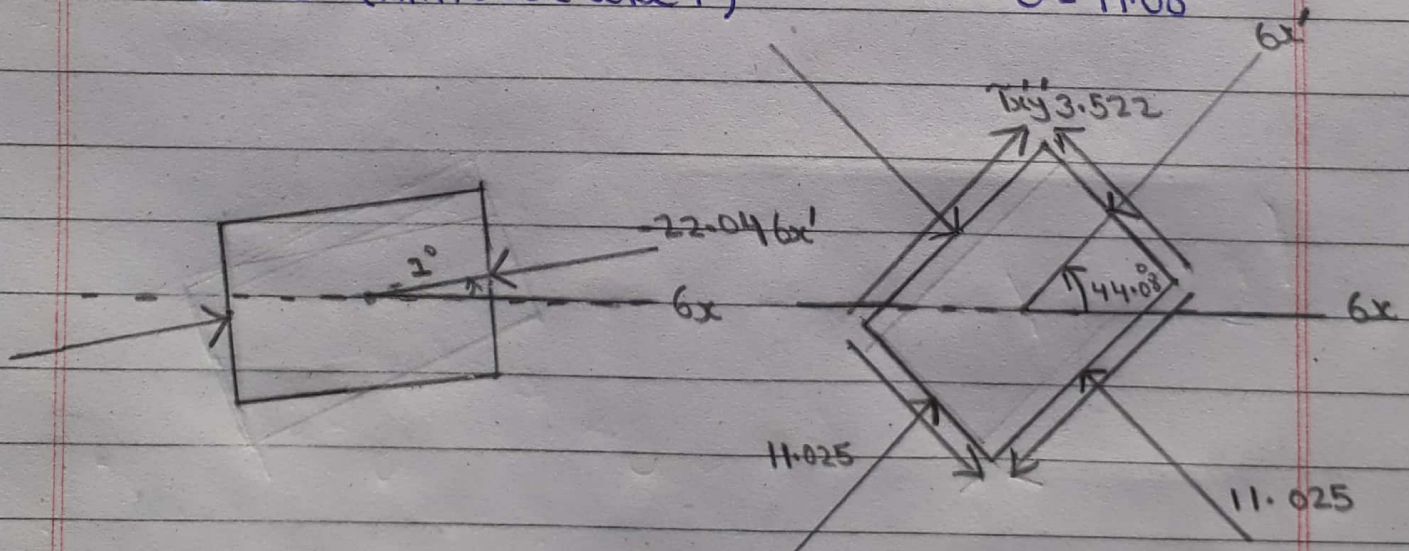 6x'
Tx'y' 3.522
-22.046x'
2°
6x
44.08°
6x
11.025
11.025